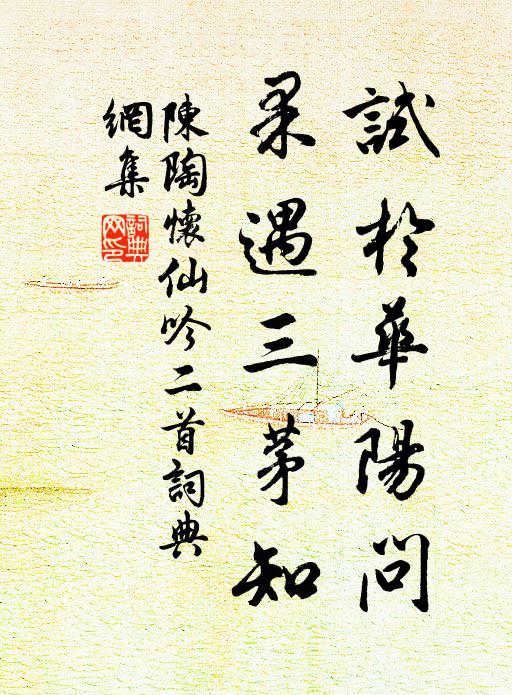 試於華陽問
果遇三茅知
陳陶懷仙吟二首詞典
網集
詞典
网印